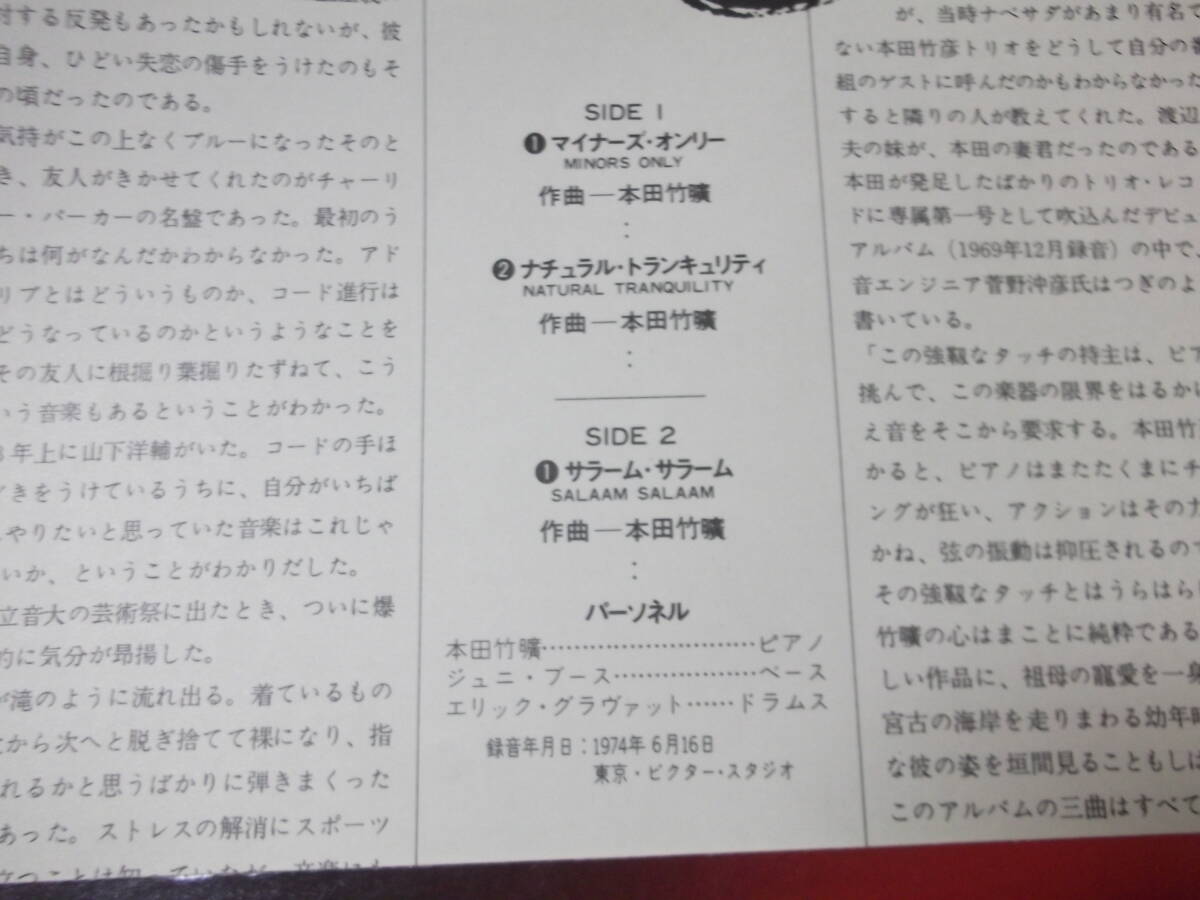 対する反発もあったかもしれないが、彼
自身、ひどい失恋の傷手をうけたのもそ
の頃だったのである。
気持がこの上なくブルーになったそのと
き、友人がきかせてくれたのがチャーリ
ー・パーカーの名盤であった。最初のう
ちは何がなんだかわからなかった。アド
リブとはどういうものか、コード進行は
どうなっているのかというようなことを
その友人に根掘り葉掘りたずねて、こう
いう音楽もあるということがわかった。
年上に山下洋輔がいた。コードの手ほ
どきをうけているうちに、自分がいちば
んやりたいと思っていた音楽はこれじゃ
ないか、ということがわかりだした。
立音大の芸術祭に出たとき、ついに爆
的に気分が昂揚した。
が滝のように流れ出る。着ているもの
次から次へと脱ぎ捨てて裸になり、指
れるかと思うばかりに弾きまくった
あった。ストレスの解消にスポーツ
立つことは知っていたが、音楽にも
SIDE 1
❶マイナーズ・オンリー
MINORS ONLY
作曲—本田竹曠
:
❷ナチュラル・トランキュリティ
NATURAL TRANQUILITY
作曲—本田竹曠
:
SIDE 2
❶サラーム・サラーム
SALAAM SALAAM
作曲—本田竹曠
:
パーソネル
本田竹曠…………………………ピアノ
ジュニ・ブース………………ベース
エリック・グラヴァット……ドラムス
録音年月日：1974年6月16日
東京・ビクター・スタジオ
が、当時ナベサダがあまり有名で
ない本田竹彦トリオをどうして自分の番
組のゲストに呼んだのかもわからなかった
すると隣りの人が教えてくれた。渡辺
夫の妹が、本田の妻君だったのである
本田が発足したばかりのトリオ・レコ
ドに専属第一号として吹込んだデビュ
アルバム（1969年12月録音）の中で、
音エンジニア菅野沖彦氏はつぎのよ
書いている。
「この強靱なタッチの持主は、ピア
挑んで、この楽器の限界をはるかに
え音をそこから要求する。本田竹
かると、ピアノはまたたくまにチ
ングが狂い、アクションはその力
かね、弦の振動は抑圧されるので
その強靱なタッチとはうらはら
竹曠の心はまことに純粋である
しい作品に、祖母の寵愛を一身
宮古の海岸を走りまわる幼年時
な彼の姿を垣間見ることもしば
このアルバムの三曲はすべて